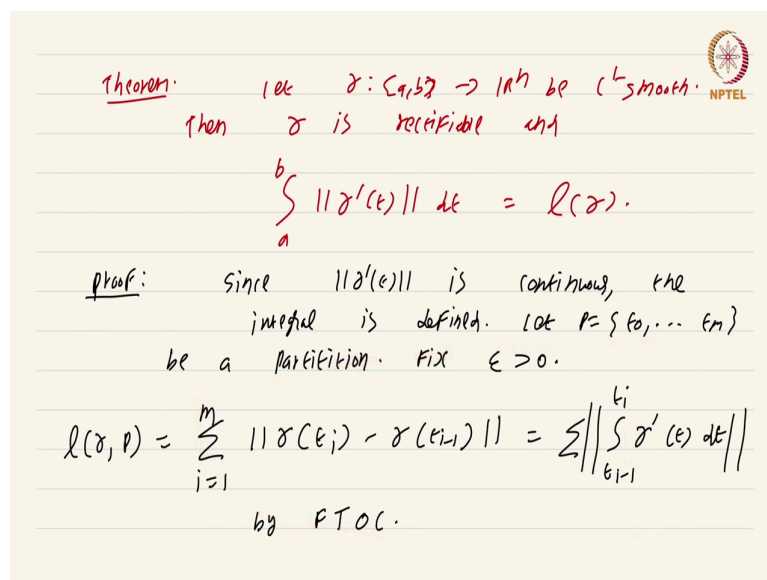 NPTEL
Theorem. Let γ : [a,b] → ℝⁿ be C¹-smooth.
Then γ is rectifiable and
∫_a^b ||γ'(t)|| dt = l(γ).
Proof: Since ||γ'(t)|| is continuous, the
integral is defined. Let P = {t₀, ... tₘ}
be a partition. Fix ε > 0.
l(γ, P) = ∑_{i=1}^m ||γ(tᵢ) - γ(tᵢ₋₁)|| = ∑ ||∫_{tᵢ₋₁}^{tᵢ} γ'(t) dt||
by FTOC.